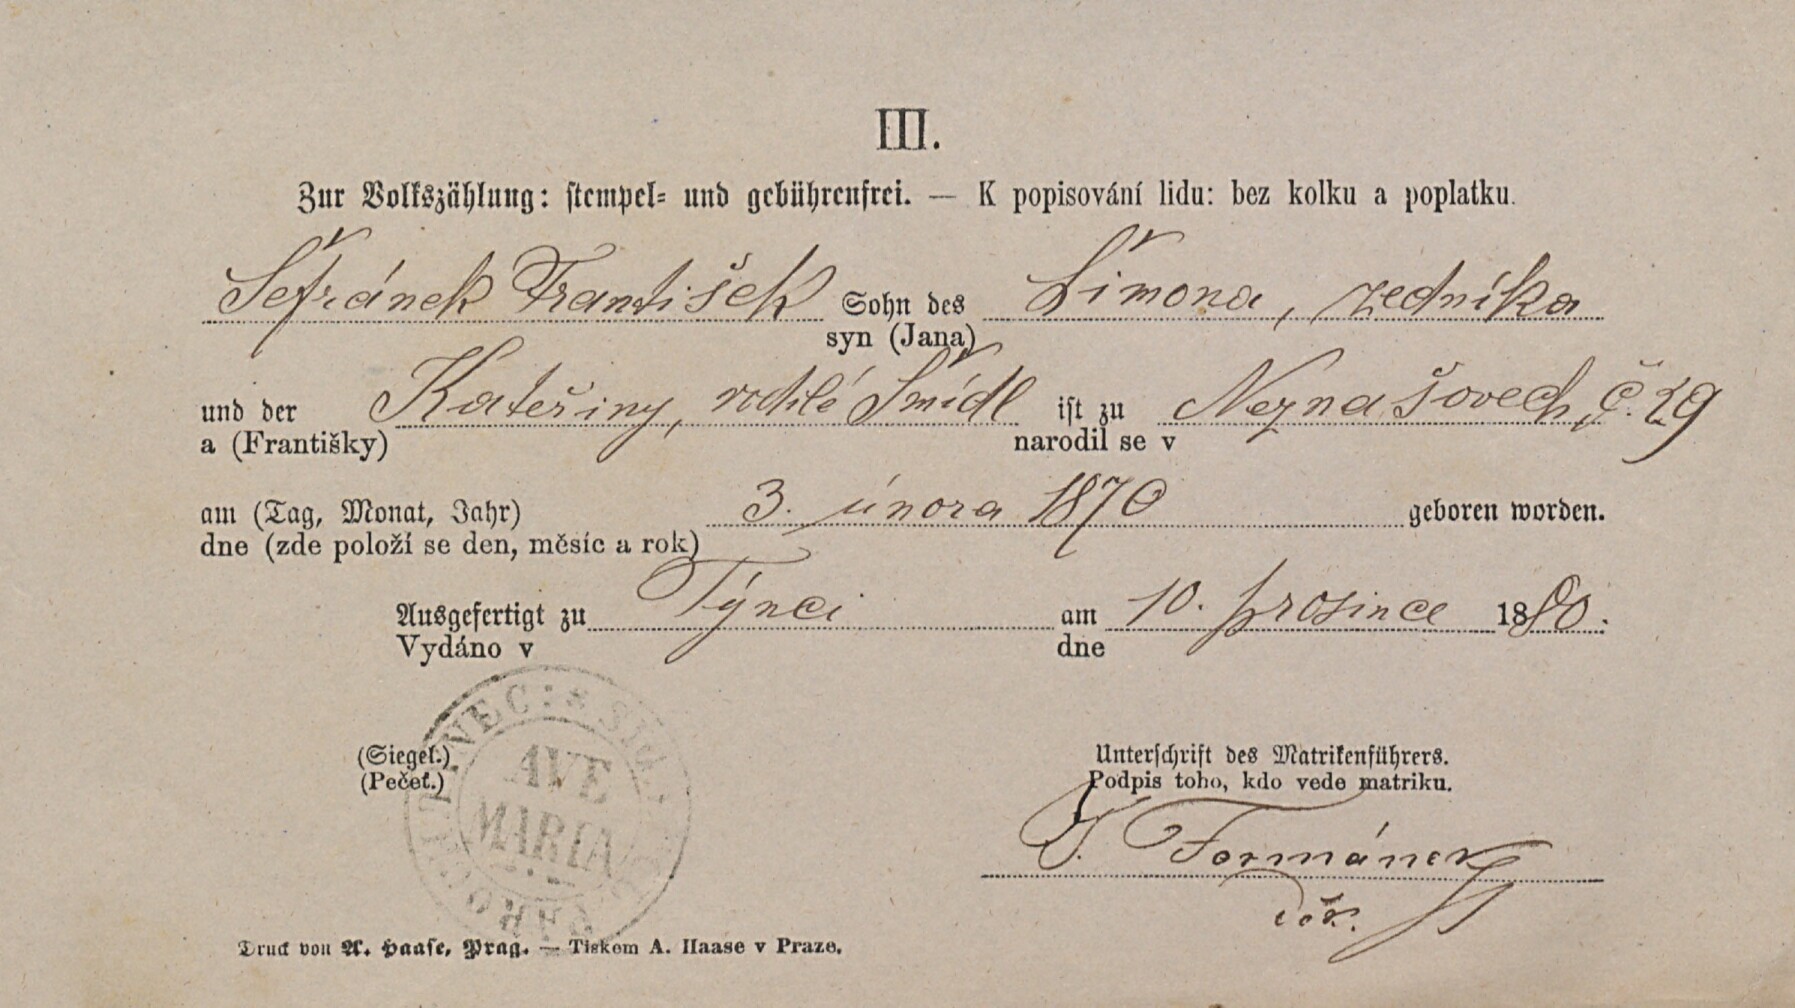 III.
Zur Volkszählung: stempel- und gebührenfrei. — K popisování lidu: bez kolku a poplatku.
Šefránek František Sohn des Šimona, zedníka
syn (Jana)
und der Kateřiny, rozilé Šmídl ist zu Neznašovech, č. 29
a (Františky) narodil se v
am (Tag, Monat, Jahr) 3. února 1870 geboren worden.
dne (zde položí se den, měsíc a rok)
Ausgefertigt zu Týnci am 10. prosince 1880.
Vydáno v dne
(Siegel.)
(Pečeť.)
AVE
MARIA
Unterschrift des Matrikenführers.
Podpis toho, kdo vede matriku.
Formánek
děk.
Druck von A. Haase, Prag. — Tiskem A. Haase v Praze.